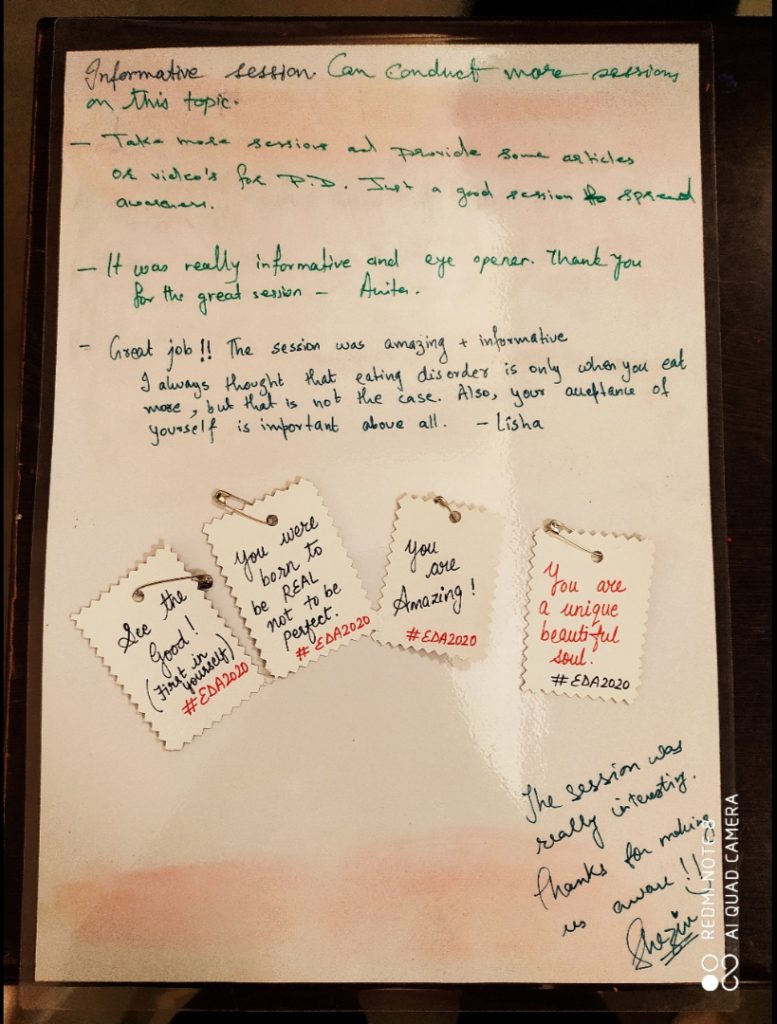 Informative session. Can conduct more sessions
on this topic.
- Take more sessions and provide some articles
or video's for P.D. Just a good session to spread
awareness.
- It was really informative and eye opener. Thank you
for the great session - Anita.
- Great job!! The session was amazing + informative
I always thought that eating disorder is only when you eat
more, but that is not the case. Also, your acceptance of
yourself is important above all. - Lisha
See the
Good!
(First in
yourself)
#EDA2020
You were
born to
be REAL
not to be
perfect.
#EDA2020
You
are
Amazing!
#EDA2020
You are
a unique
beautiful
soul.
#EDA2020
The session was
really interesting.
Thanks for making
us aware!!
REDMI NOTE 8
AI QUAD CAMERA